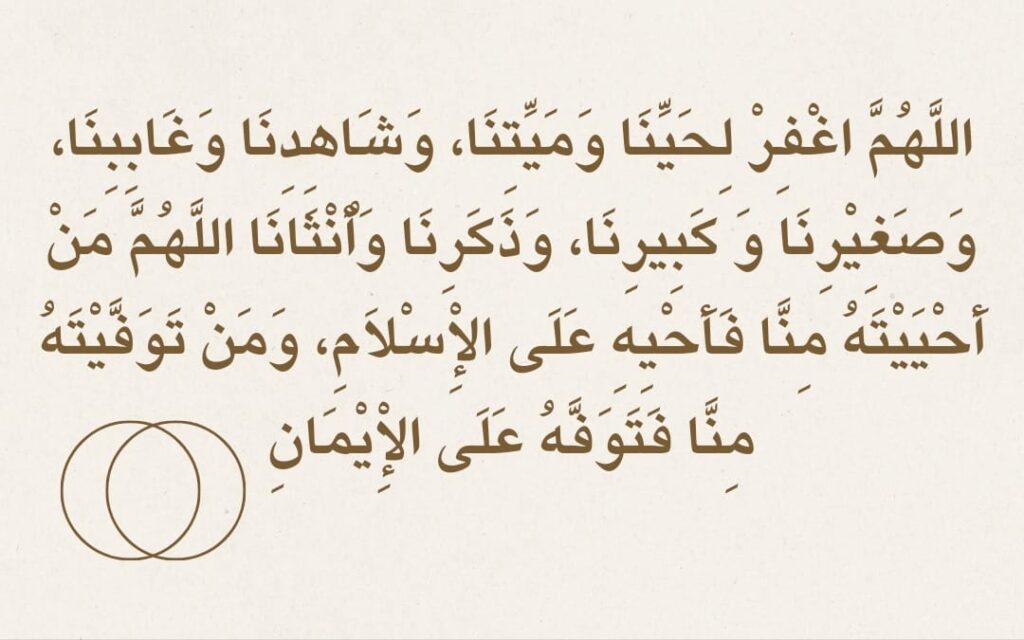 اللَّهُمَّ اغْفِرْ لِحَيِّنَا وَمَيِّتِنَا، وَشَاهِدِنَا وَغَابِبِنَا،
وَصَغِيْرِنَا وَ كَبِيرِنَا، وَذَكَرِنَا وَٱنْثَانَا اللَّهُمَّ مَنْ
أَحْيَيْتَهُ مِنَّا فَأَحْيِهِ عَلَى الإِْسْلاَمِ، وَمَنْ تَوَفَّيْتَهُ
مِنَّا فَتَوَفَّهُ عَلَى الإِْيْمَانِ